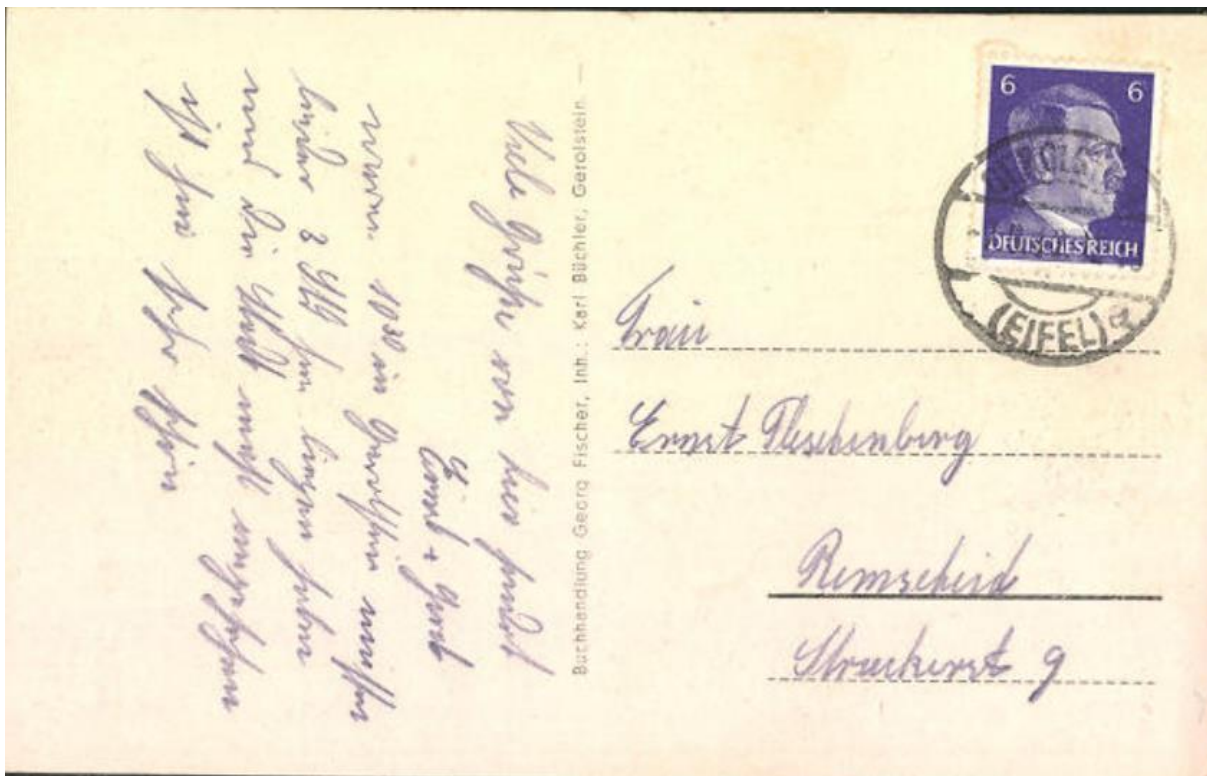 Viele Grüße von hier sendet
Ernst + Gerd
waren 10³⁰ in Gerolstein mußten
leider 3 Std liegen haben
uns die Stadt mal angesehen
ist hier sehr schön
Buchhandlung Georg Fischer, Inh.: Karl Büchler, Gerolstein —
6 6
DEUTSCHES REICH
(EIFEL)
Frau
Ernst Fleschenberg
Remscheid
9